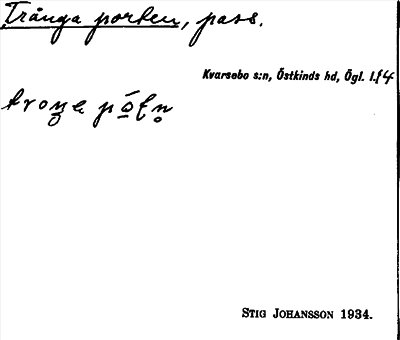 Trånga porten, pass.
Kvarsebo s:n, Östkinds hd, Ögl. l. f4
STIG JOHANSSON 1934.